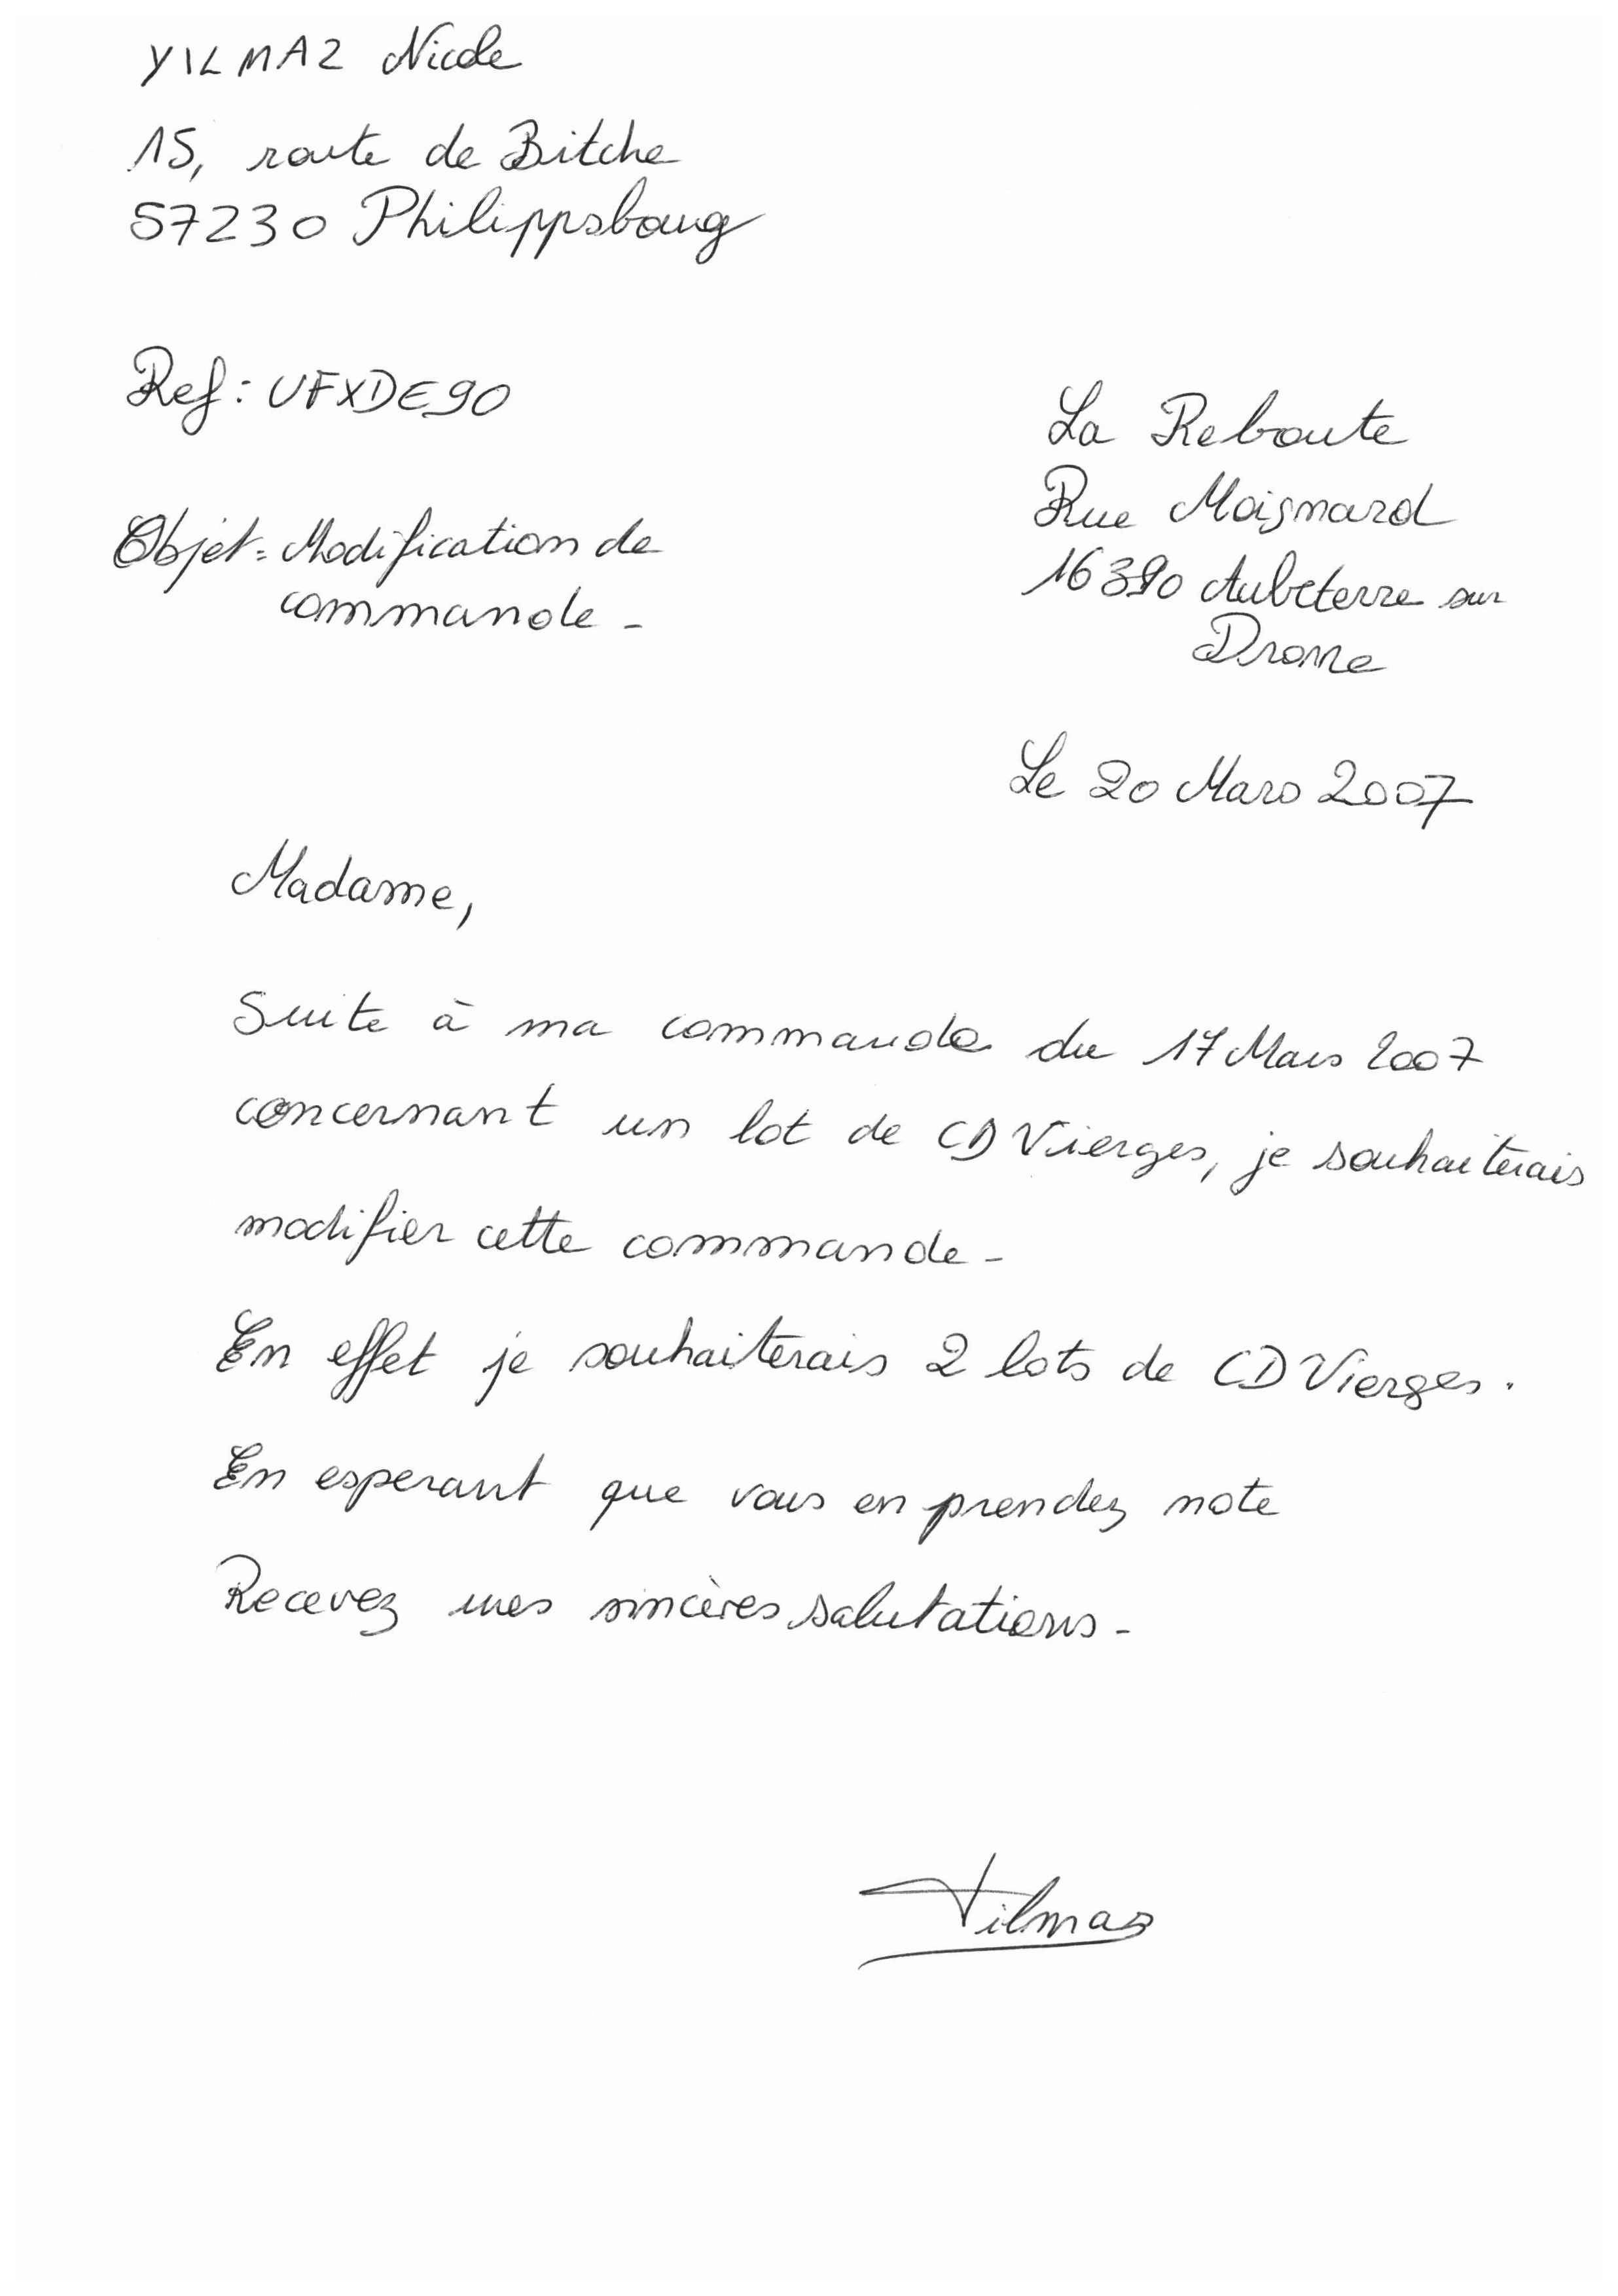 YILMAZ Nicole
15, route de Bitche
57230 Philippsbourg
Ref : UFXDE90
Objet : Modification de
commande -
La Reboute
Rue Moignard
16390 Aubeterre sur
Dronne
Le 20 Mars 2007
Madame,
Suite à ma commande du 17 Mars 2007
concernant un lot de CD Vierges, je souhaiterais
modifier cette commande -
En effet je souhaiterais 2 lots de CD Vierges.
En esperant que vous en prendez note
Recevez mes sincères salutations -
Yilmaz